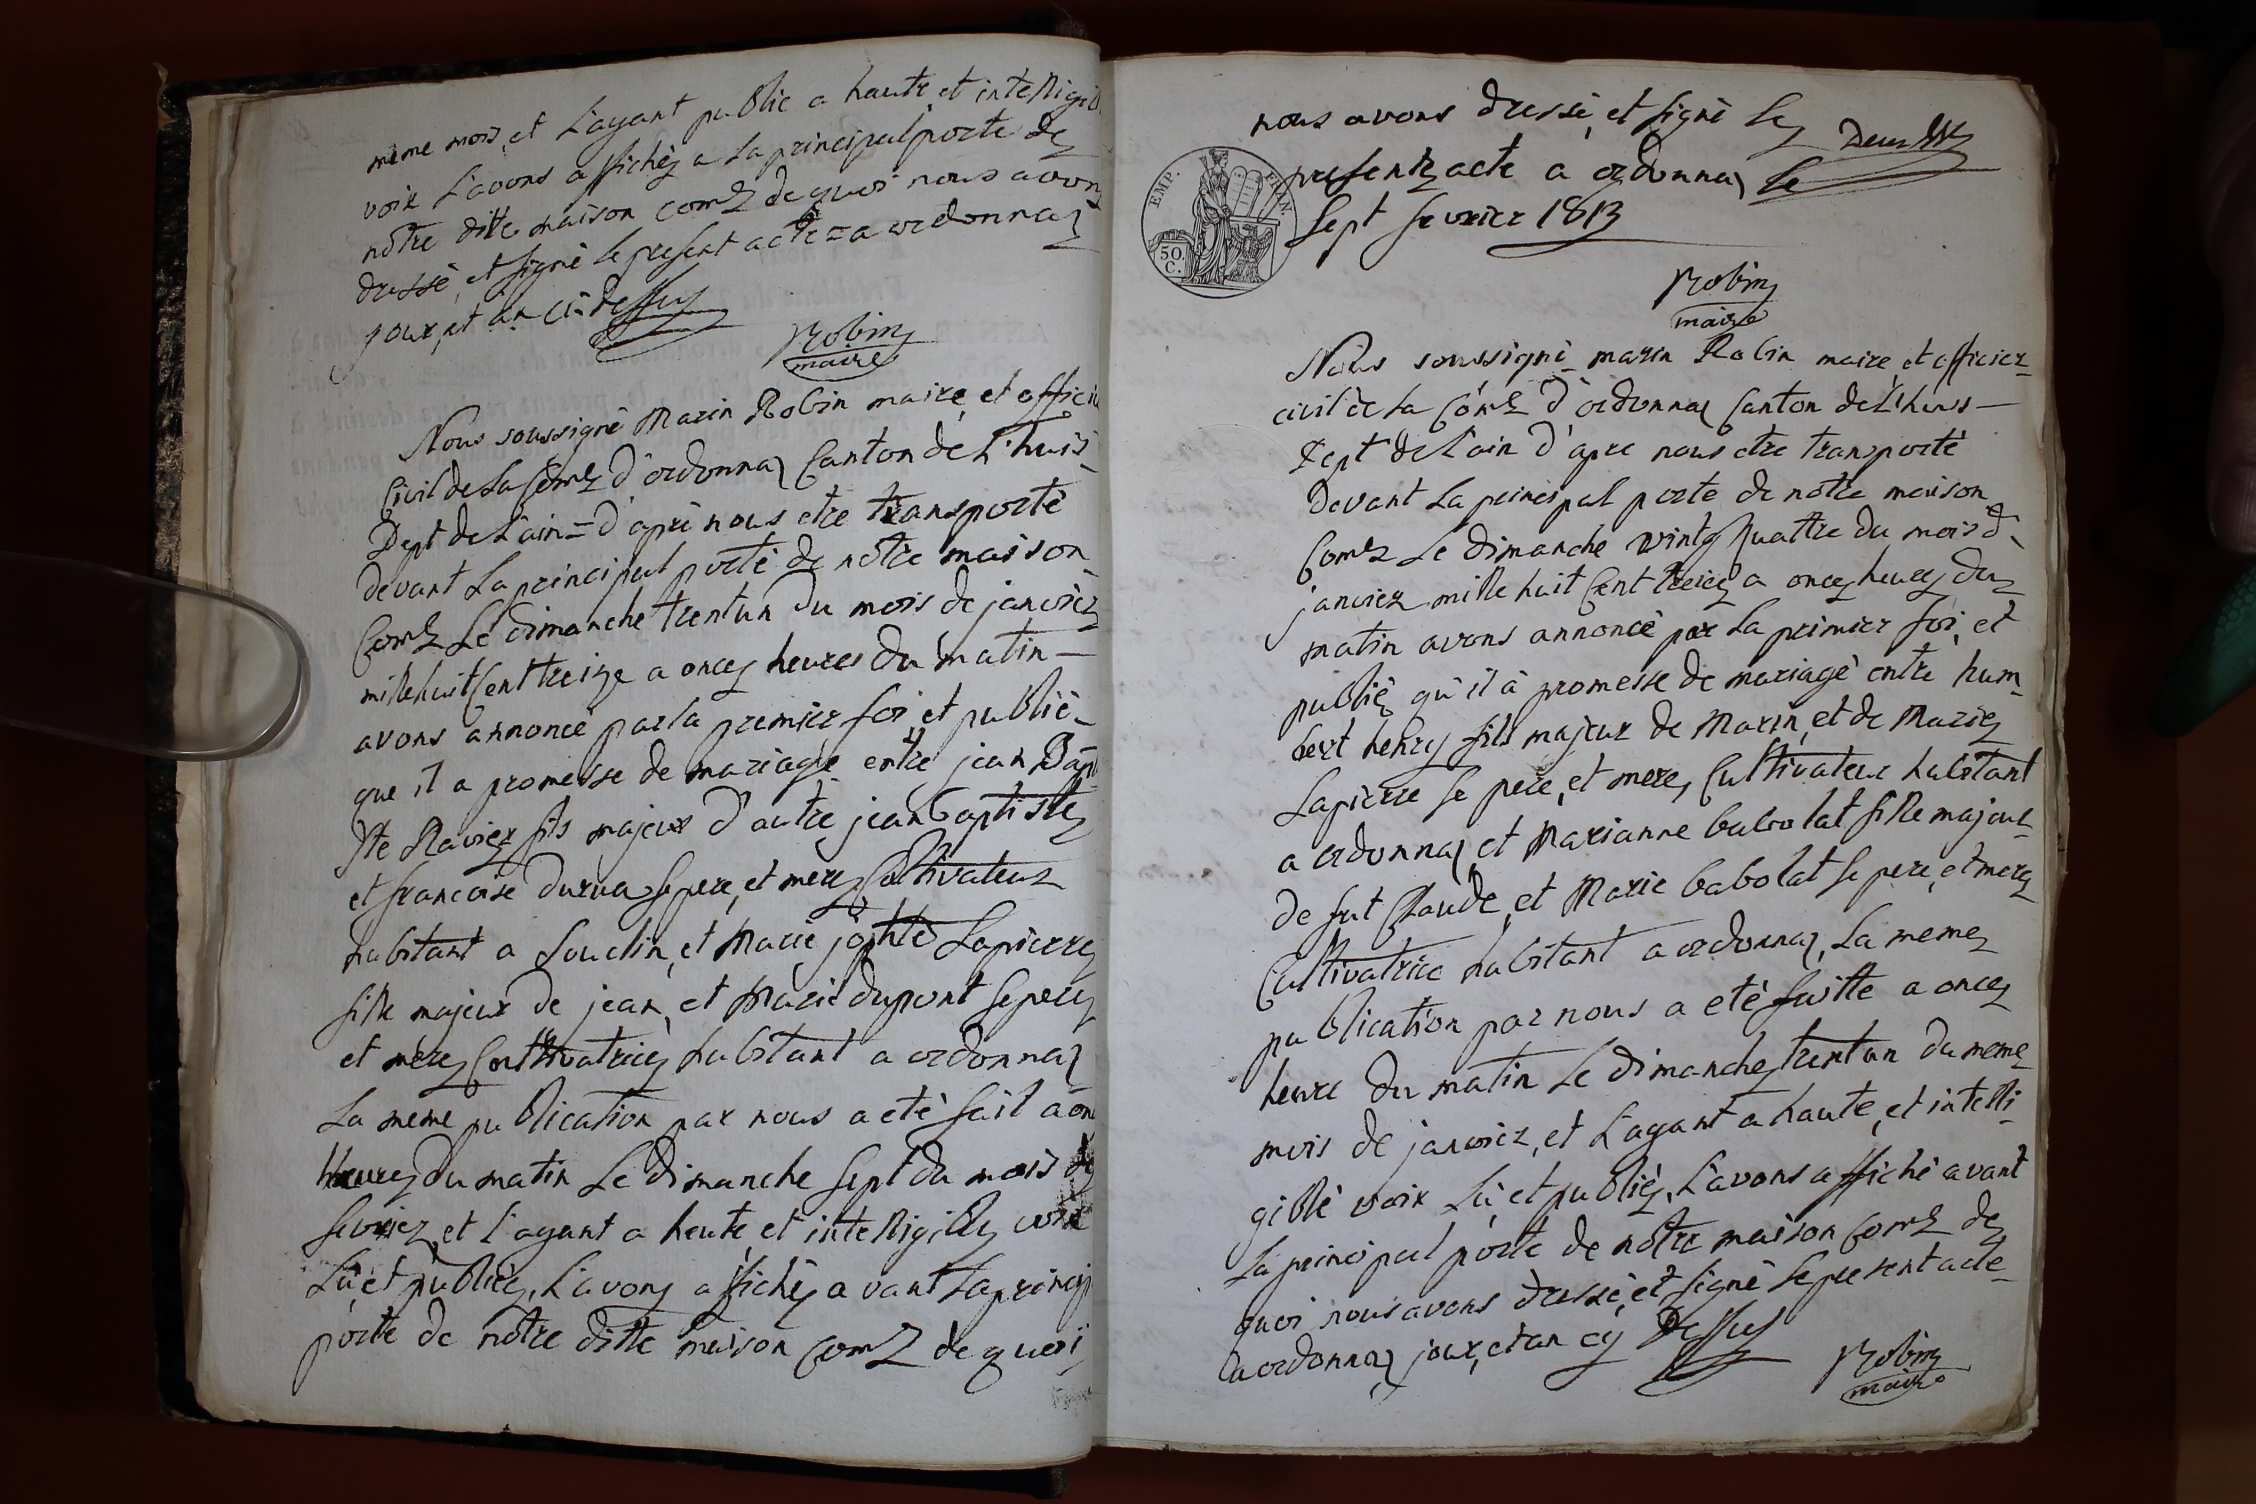 meme mois, et L'ayant public a haute, et intelligib
voix L'avons affichéz a La principal porte de
nôtre ditte maison comle de quoi nous avons
dressé, et signé le present acte = a ordonnaz
jour, et an ci-dessus
Robin
maire
Nous soussigné Marin Robin maire, et officie
civil de La comle d'ordonnaz Canton de L'huis-
Dept de L'ain = d'apré nous etre transporté
devant La principal porte de nôtre maison
Comle Le dimanche trentun du mois de janvier
mille huit Cent treize a onze heures du matin-
avons annoncé par la premier foi, et publié-
que il a promesse de mariage entre jean Bapt
Ste Ravier fils majeur d'autre jean Baptiste
et francoise durua Se pere, et mere Cultivateur
habitant a Souclin, et Marie Lapierre
fille majeur de jean, et Marie dupont Se pere
et mere Cultivatrice habitant a ordonnaz
La meme publication par nous a eté fait a on
heures du matin Le dimanche Sept du mois de
fevrier, et L'ayant a heute, et intelligible voix
Lù, et publiéz, L'avons affichéz avant La princip
porte de nôtre ditte maison comle de quoi
nous avons dressé, et signé Le
present acte a ordonnaz Le
Sept fevrier 1813
EMP. FRAN.
50. C.
Robin
maire
Nous soussigné marin Robin maire, et officier
civil de La comle d'ordonnaz Canton de L'huis-
Dept de L'ain d'apre nous etre transporté
devant La principal porte de notre maison
Comle Le dimanche vintz quattre du mois de
janvier mille huit Cent treize a onze heures du
matin avons annoncé par La primier foi, et
publiéz qu'il à promesse de mariagé entre hum-
bert henry fils majeur de Marin, et de Marie
Lapierre Se pere, et mere, Cultivateur habitant
a ordonnaz, et Marianne babolat fille majeur
de fut Claude, et Marie babolat Se pere, et mere
Cultivatrice habitant a ordonnaz, La meme
publication par nous a eté faitte a onze
heure du matin Le dimanche trentun du meme
mois de janvier, et L'ayant a haute, et intelli-
giblé voix Lù, et publiéz, L'avons affiché avant
La principal porte de nôtre maison comle de
quoi nous avons dressé, et signé Le present acte
a ordonnaz jour, et an cy dessus
Robin
maire